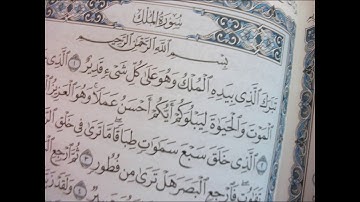 سُورَةُ المُلْكِ
بِسْمِ اللَّهِ الرَّحْمَٰنِ الرَّحِيمِ
تَبَٰرَكَ الَّذِي بِيَدِهِ الْمُلْكُ وَهُوَ عَلَىٰ كُلِّ شَيْءٍ قَدِيرٌ ١ الَّذِي
الْمَوْتَ وَالْحَيَوٰةَ لِيَبْلُوَكُمْ أَيُّكُمْ أَحْسَنُ عَمَلًا وَهُوَ الْعَزِيزُ
٢ الَّذِي خَلَقَ سَبْعَ سَمَٰوَٰتٍ طِبَاقًا مَّا تَرَىٰ فِي خَلْقِ
فَارْجِعِ الْبَصَرَ هَلْ تَرَىٰ مِن فُطُورٍ ٣ ثُمَّ ارْجِعِ
٤ وَلَقَدْ